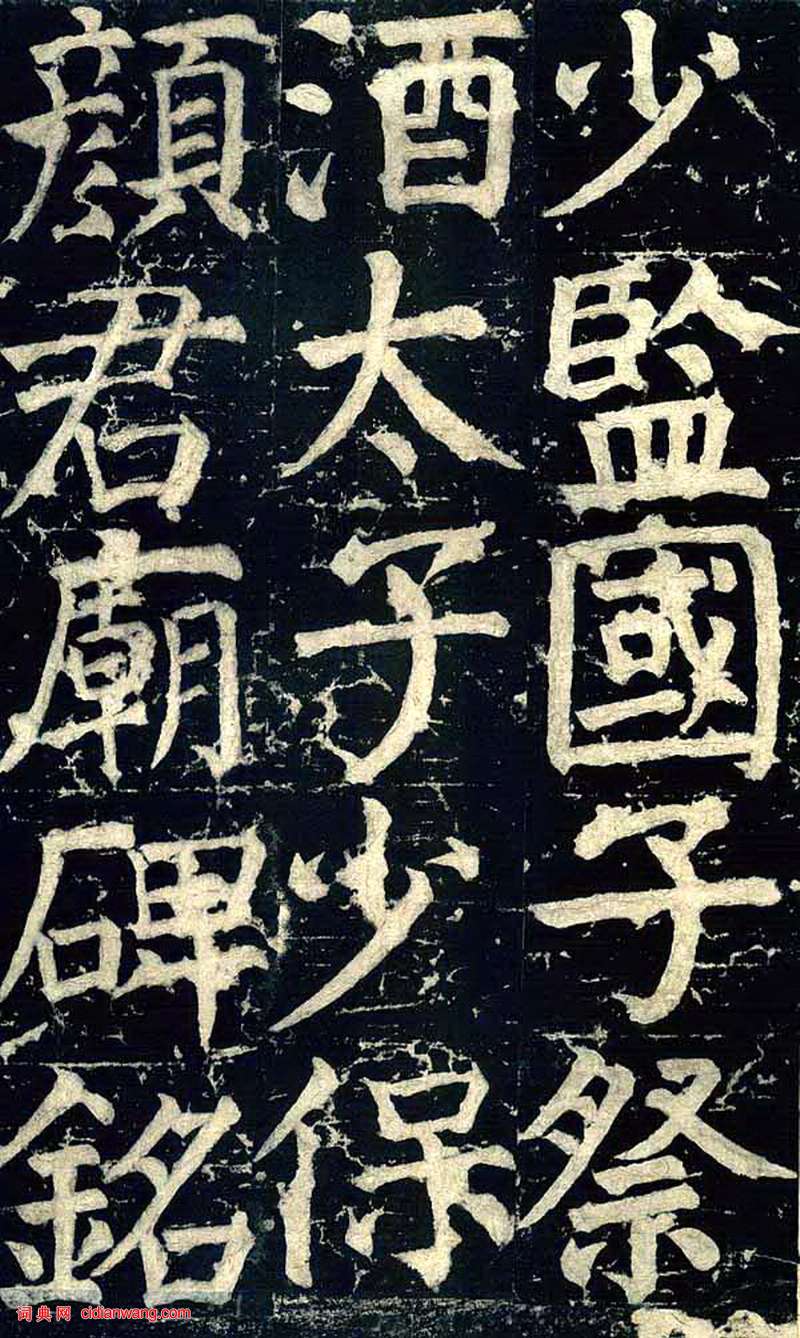 少監國子祭
酒太子少保
顏君廟碑銘
词典网 cidianwang.com